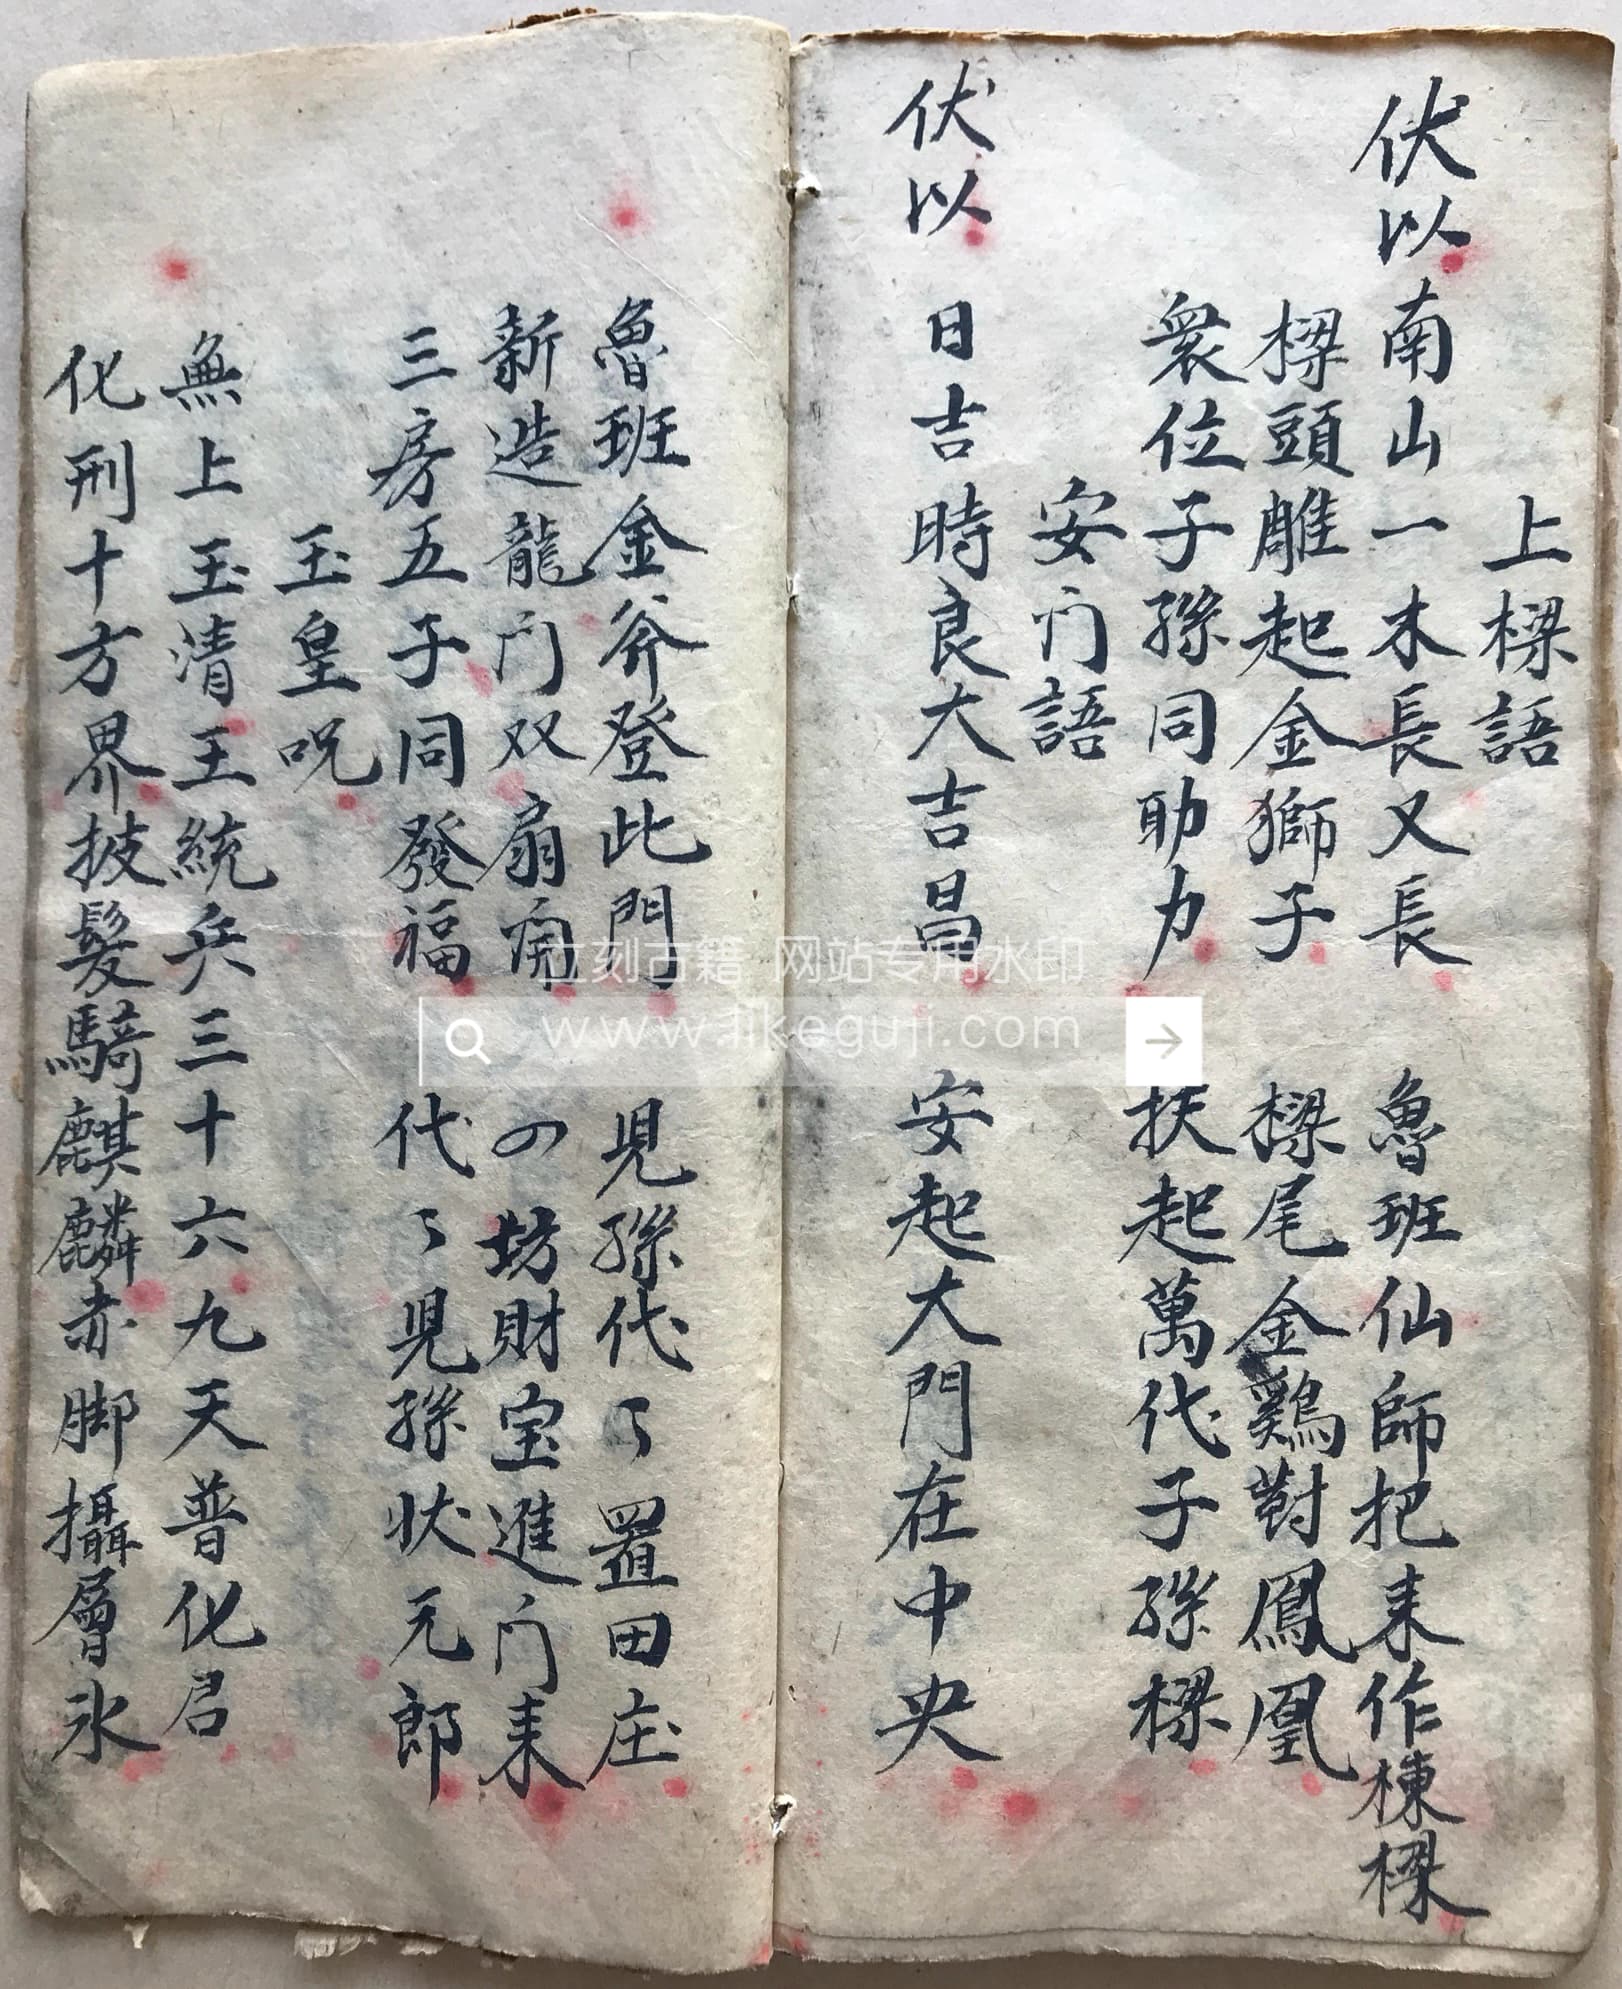 上樑語
伏以南山一木長又長 魯班仙師把來作棟樑
樑頭雕起金獅子 樑尾金鷄對鳳凰
衆位子孫同助力 扶起萬代子孫樑
安门語
伏以 日吉時良大吉昌 安起大門在中央
魯班金斧登此門 児孫代〻置田庄
新造龍门双扇開 四坊財宝進门来
三房五子同發福 代〻児孫状元郎
玉皇咒
無上玉清王統兵三十六九天普化君
化刑十方界披髮騎麒麟赤脚攝層氷
立刻古籍 网站专用水印
www.likeguji.com